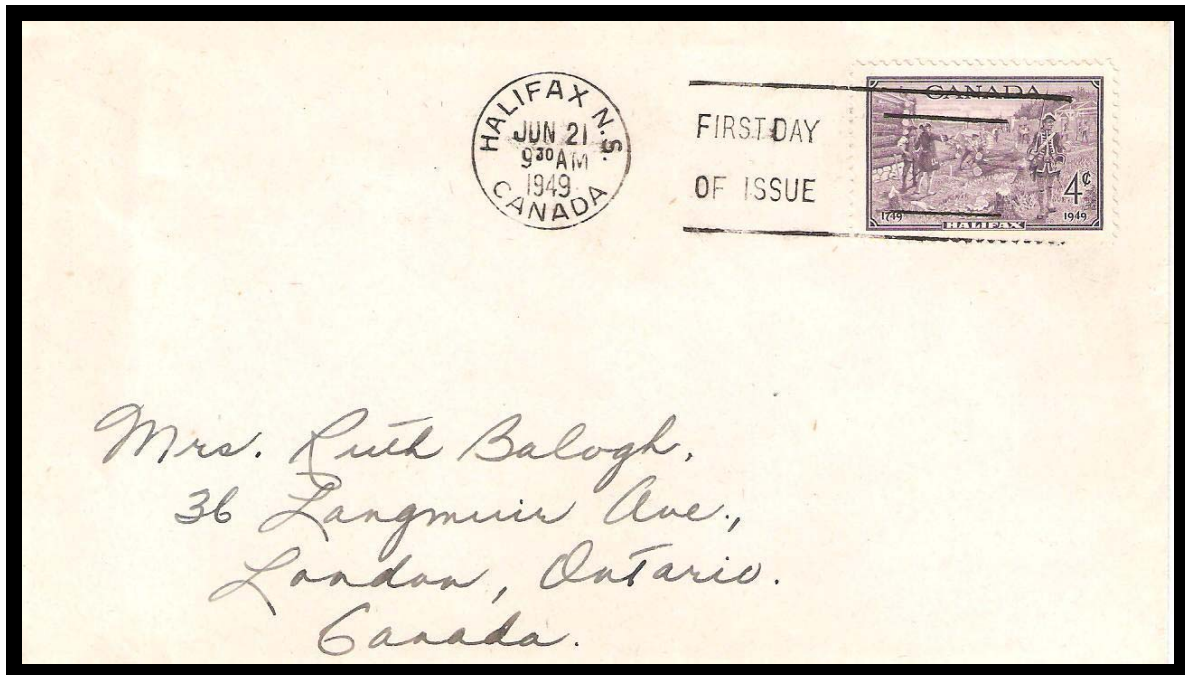 HALIFAX N.S.
JUN 21
9 30 AM
1949
CANADA
FIRST DAY
OF ISSUE
CANADA
4¢
1749
HALIFAX
1949
Mrs. Ruth Balogh,
36 Langmuir Ave.,
London, Ontario.
Canada.